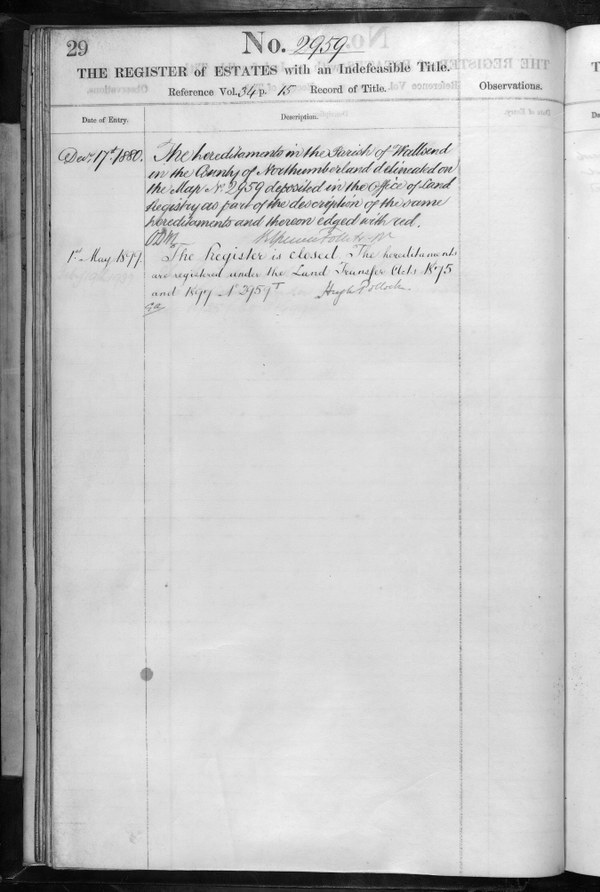 29
No. 2959
THE REGISTER of ESTATES with an Indefeasible Title.
Reference Vol. 34 p. 15 Record of Title.
Observations.
Date of Entry.
Description.
Decr 17th 1880.
The hereditaments in the Parish of Wallsend
in the County of Northumberland delineated on
the Map No 2959 deposited in the Office of Land
Registry as part of the description of the same
hereditaments and thereon edged with red.
1st May 1899.
The Register is closed The hereditaments
are registered under the Land Transfer Acts 1875
and 1897 No 2959T
Hugh Pollock.